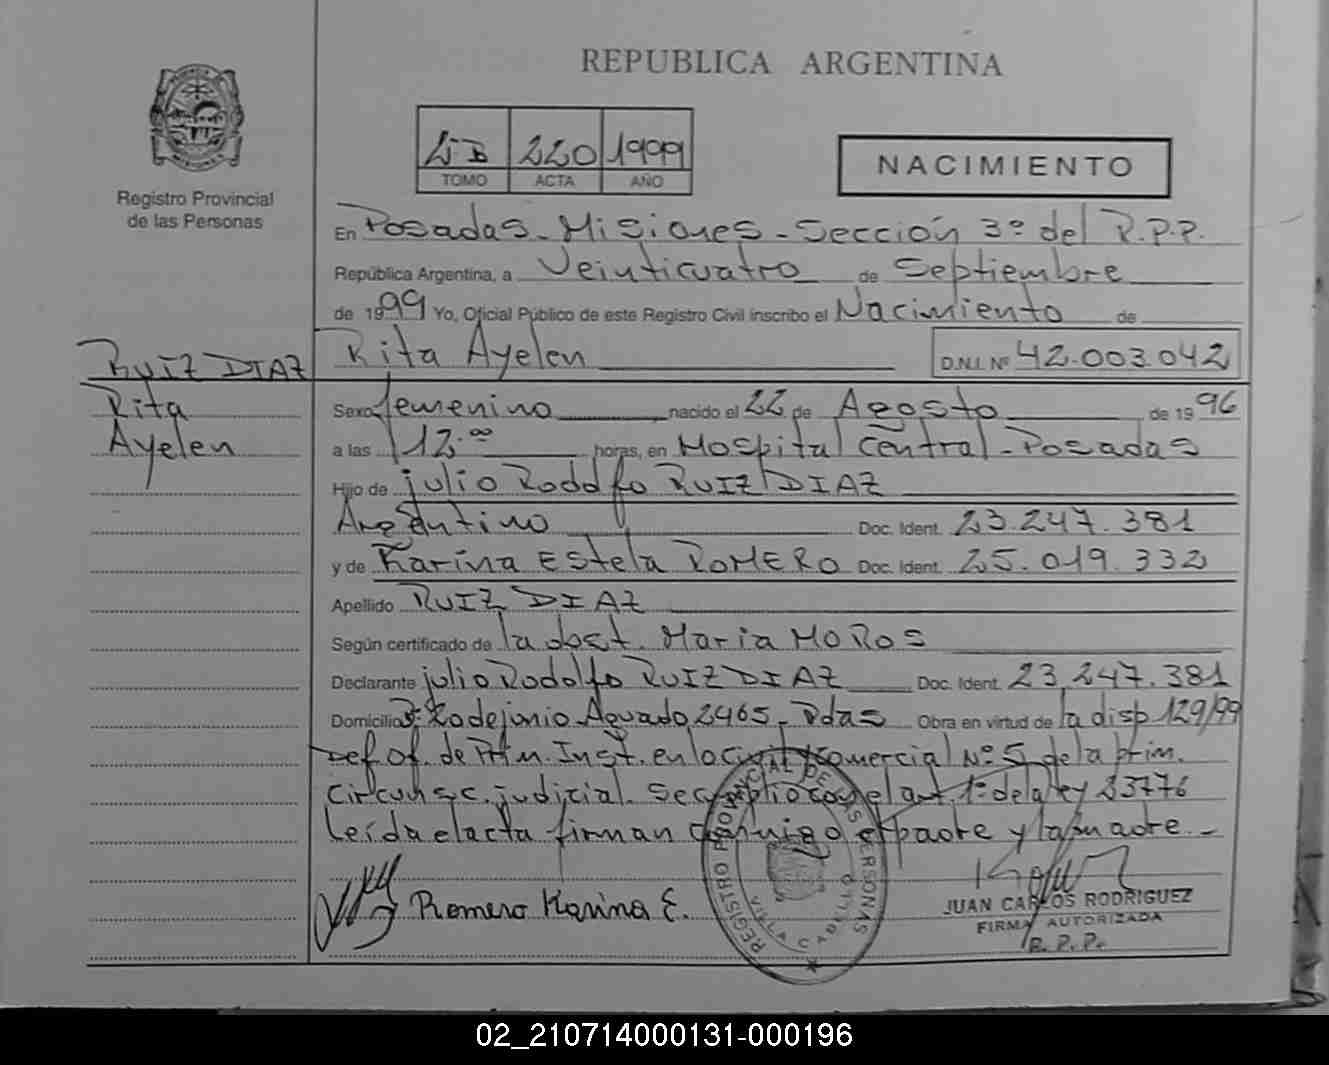 REPUBLICA ARGENTINA
2-D 220 1999
TOMO ACTA AÑO
NACIMIENTO
Registro Provincial
de las Personas
En Posadas - Misiones - Sección 3º del R.P.P.
República Argentina, a Veinticuatro de Septiembre
de 1999 Yo, Oficial Público de este Registro Civil inscribo el Nacimiento de
Rita Ayelen D.N.I. Nº 42.003.042
RUIZ DIAZ
Rita
Ayelen
Sexo femenino nacido el 22 de Agosto de 1996
a las 12.00 horas, en Hospital Central - Posadas
Hijo de julio Rodolfo RUIZ DIAZ
Argentino Doc. Ident. 23.247.381
y de Karina Estela ROMERO Doc. Ident. 25.019.332
Apellido RUIZ DIAZ
Según certificado de la obst. Maria MOROS
Declarante julio Rodolfo RUIZ DIAZ Doc. Ident. 23.247.381
Domicilio Aguado 2465 - Pdas Obra en virtud de la disp 129/99
Def. of. de Inst. en lo civil y comercial Nº 5 de la prim.
circunsc. judicial. Se el art. 1º de la ley 23776
Leída el acta firman conmigo el padre y la madre. -
Romero Karina E.
JUAN CARLOS RODRIGUEZ
FIRMA AUTORIZADA
R. P. P.
REGISTRO PROVINCIAL DE LAS PERSONAS
VILLA CABELLO
02_210714000131-000196